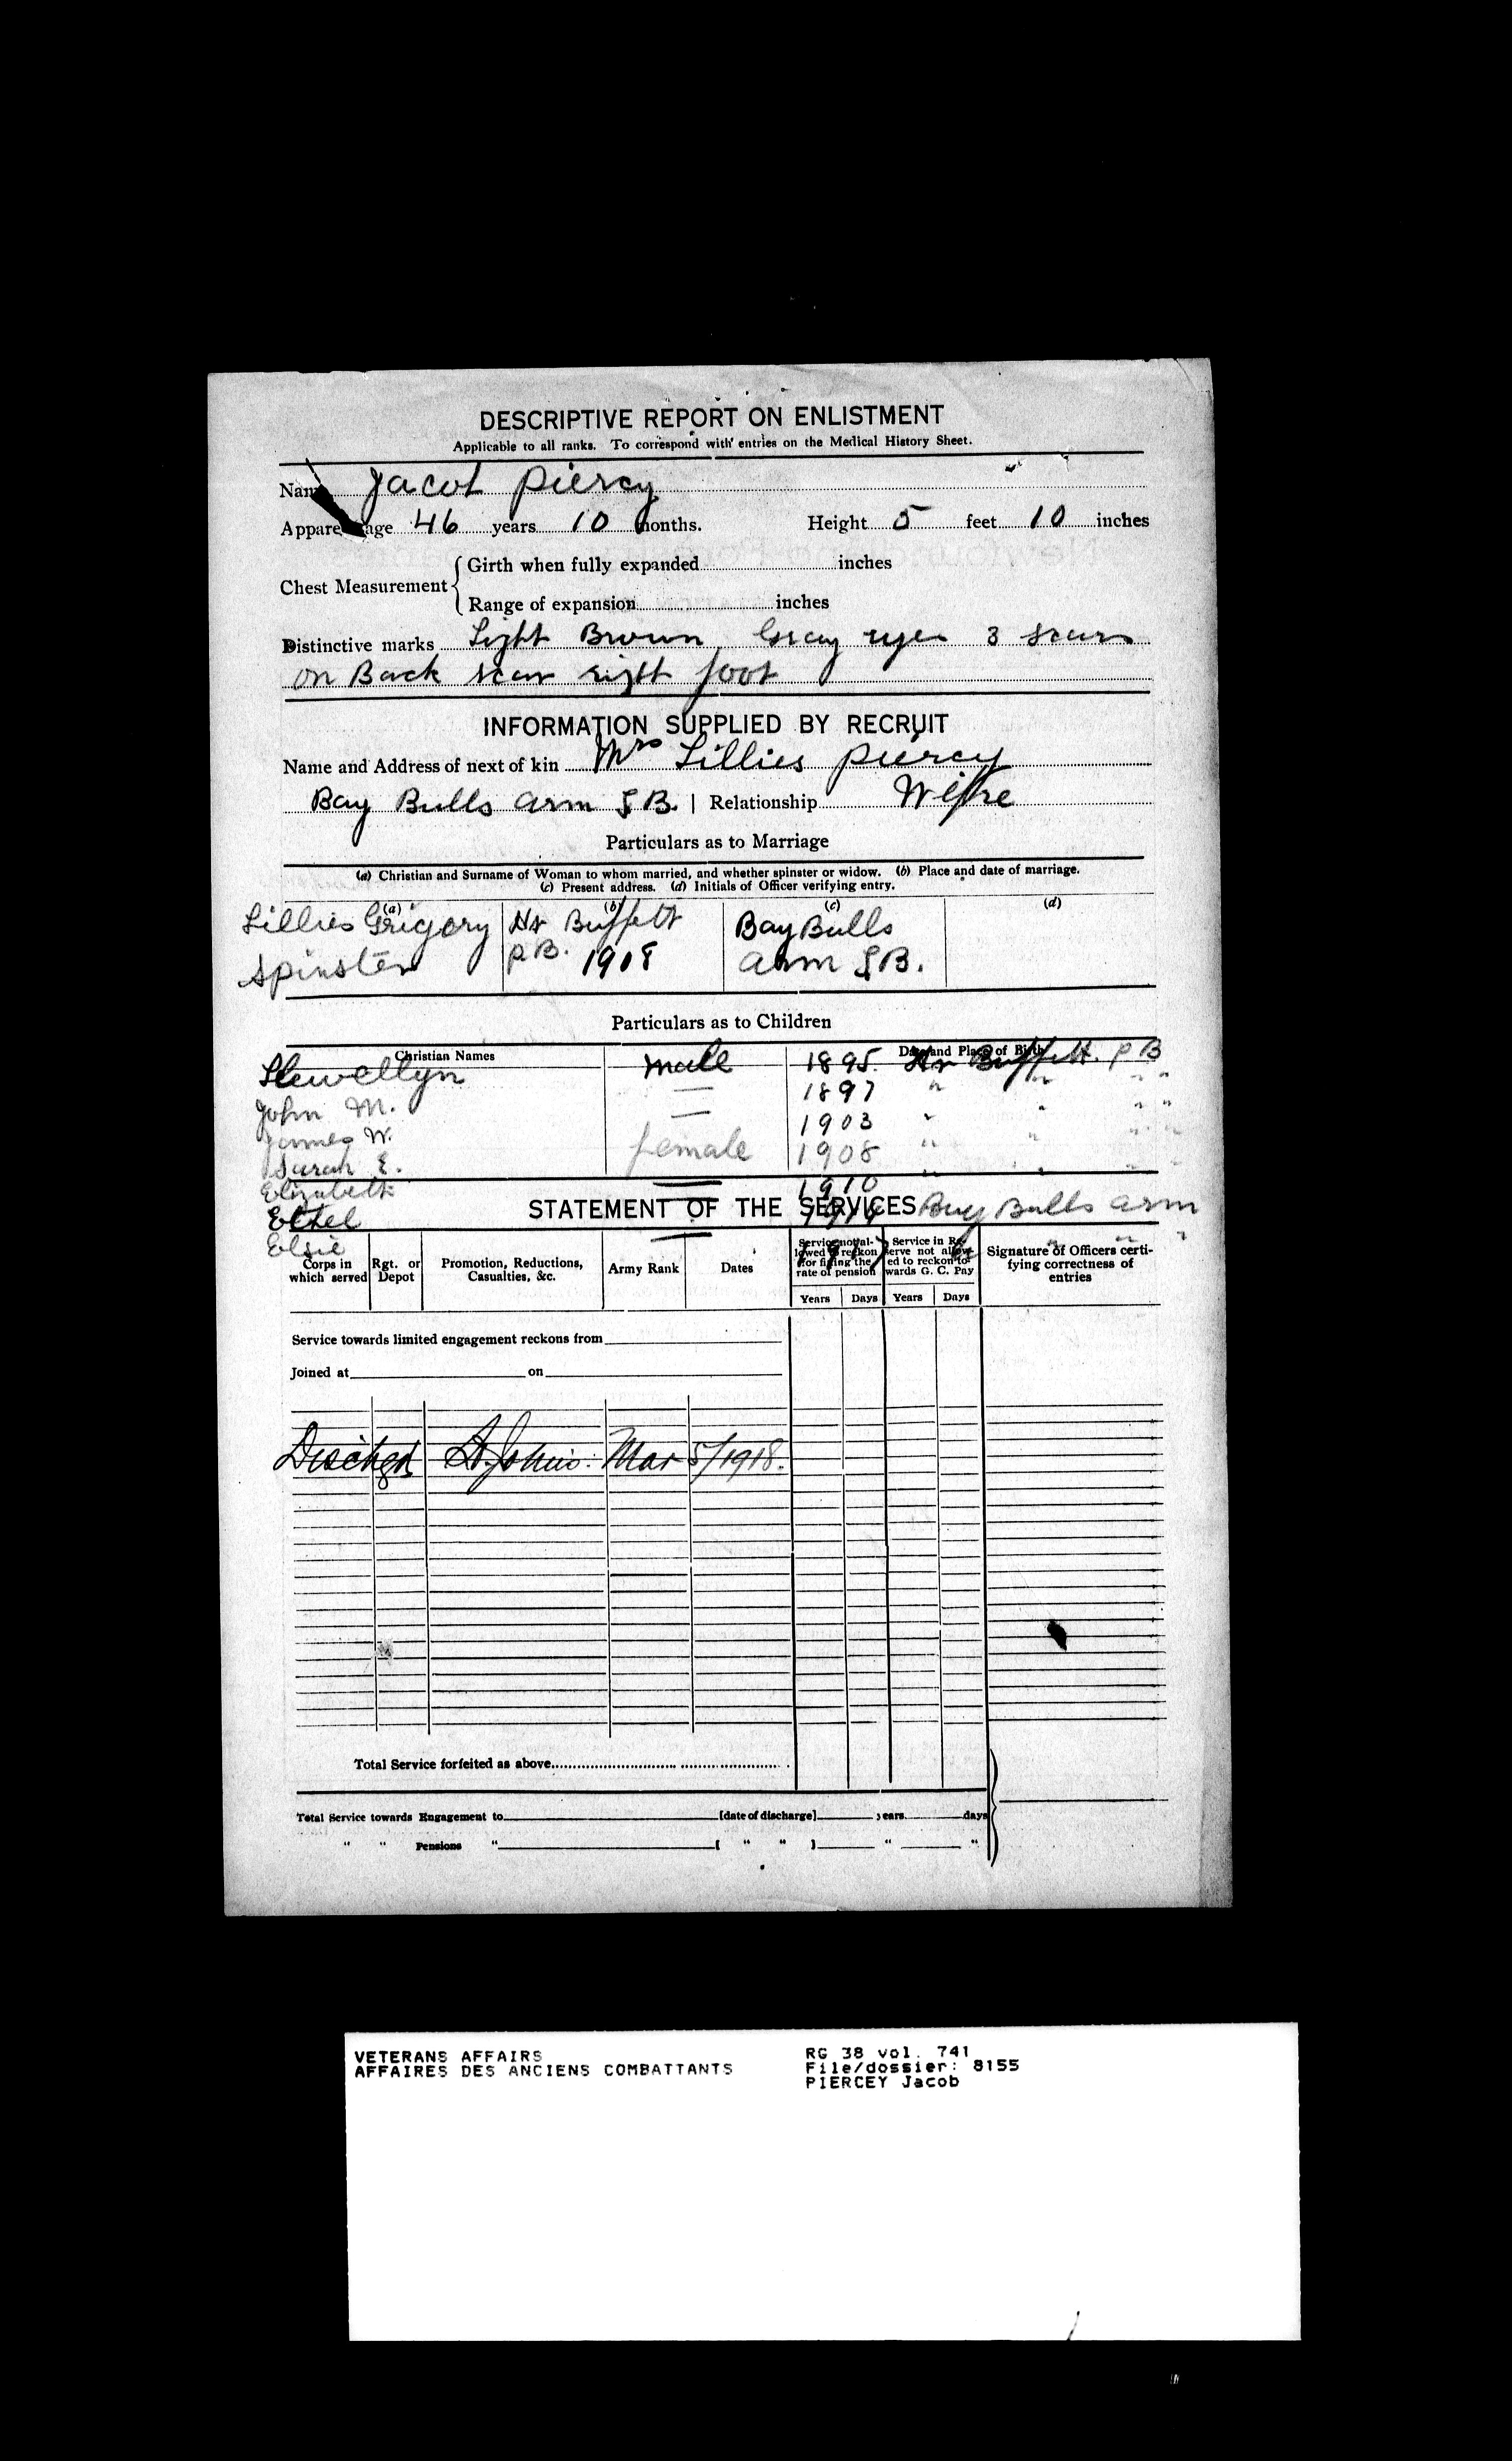 DESCRIPTIVE REPORT ON ENLISTMENT
Applicable to all ranks. To correspond with entries on the Medical History Sheet.
Name Jacob Piercy
Apparent age 46 years 10 months. Height 5 feet 10 inches
Chest Measurement
Girth when fully expanded inches
Range of expansion inches
Distinctive marks Light Brown Gray eyes 3 scars
on Back scar right foot
INFORMATION SUPPLIED BY RECRUIT
Name and Address of next of kin Mrs Lillies Piercy
Bay Bulls Arm T.B. | Relationship Wife
Particulars as to Marriage
(a) Christian and Surname of Woman to whom married, and whether spinster or widow. (b) Place and date of marriage.
(c) Present address. (d) Initials of Officer verifying entry.
(a) (b) (c) (d)
Lillies Grigory Hr Buffett Bay Bulls
Spinster P.B. 1908 Arm T.B.
Particulars as to Children
Christian Names Date and Place of Birth
Llewellyn male 1895 Hr Buffett. P B
John M. — 1897 " " " "
James W. — 1903 " " " "
Sarah E. female 1908 " " " "
Elizabeth 1910 " " " "
Ethel 1914 Bay Bulls Arm
Elsie 1917 " " "
STATEMENT OF THE SERVICES
Corps in which served Rgt. or Depot Promotion, Reductions, Casualties, &c. Army Rank Dates Service not allowed to reckon for fixing the rate of pension Service in Reserve not allowed to reckon towards G. C. Pay Signature of Officers certifying correctness of entries
Years Days Years Days
Service towards limited engagement reckons from
Joined at on
Dischgd St. John's. Mar 5/1918.
Total Service forfeited as above
Total Service towards Engagement to [date of discharge] years days
" " Pensions " [ " " ] " "
VETERANS AFFAIRS
AFFAIRES DES ANCIENS COMBATTANTS
RG 38 vol. 741
File/dossier: 8155
PIERCEY Jacob